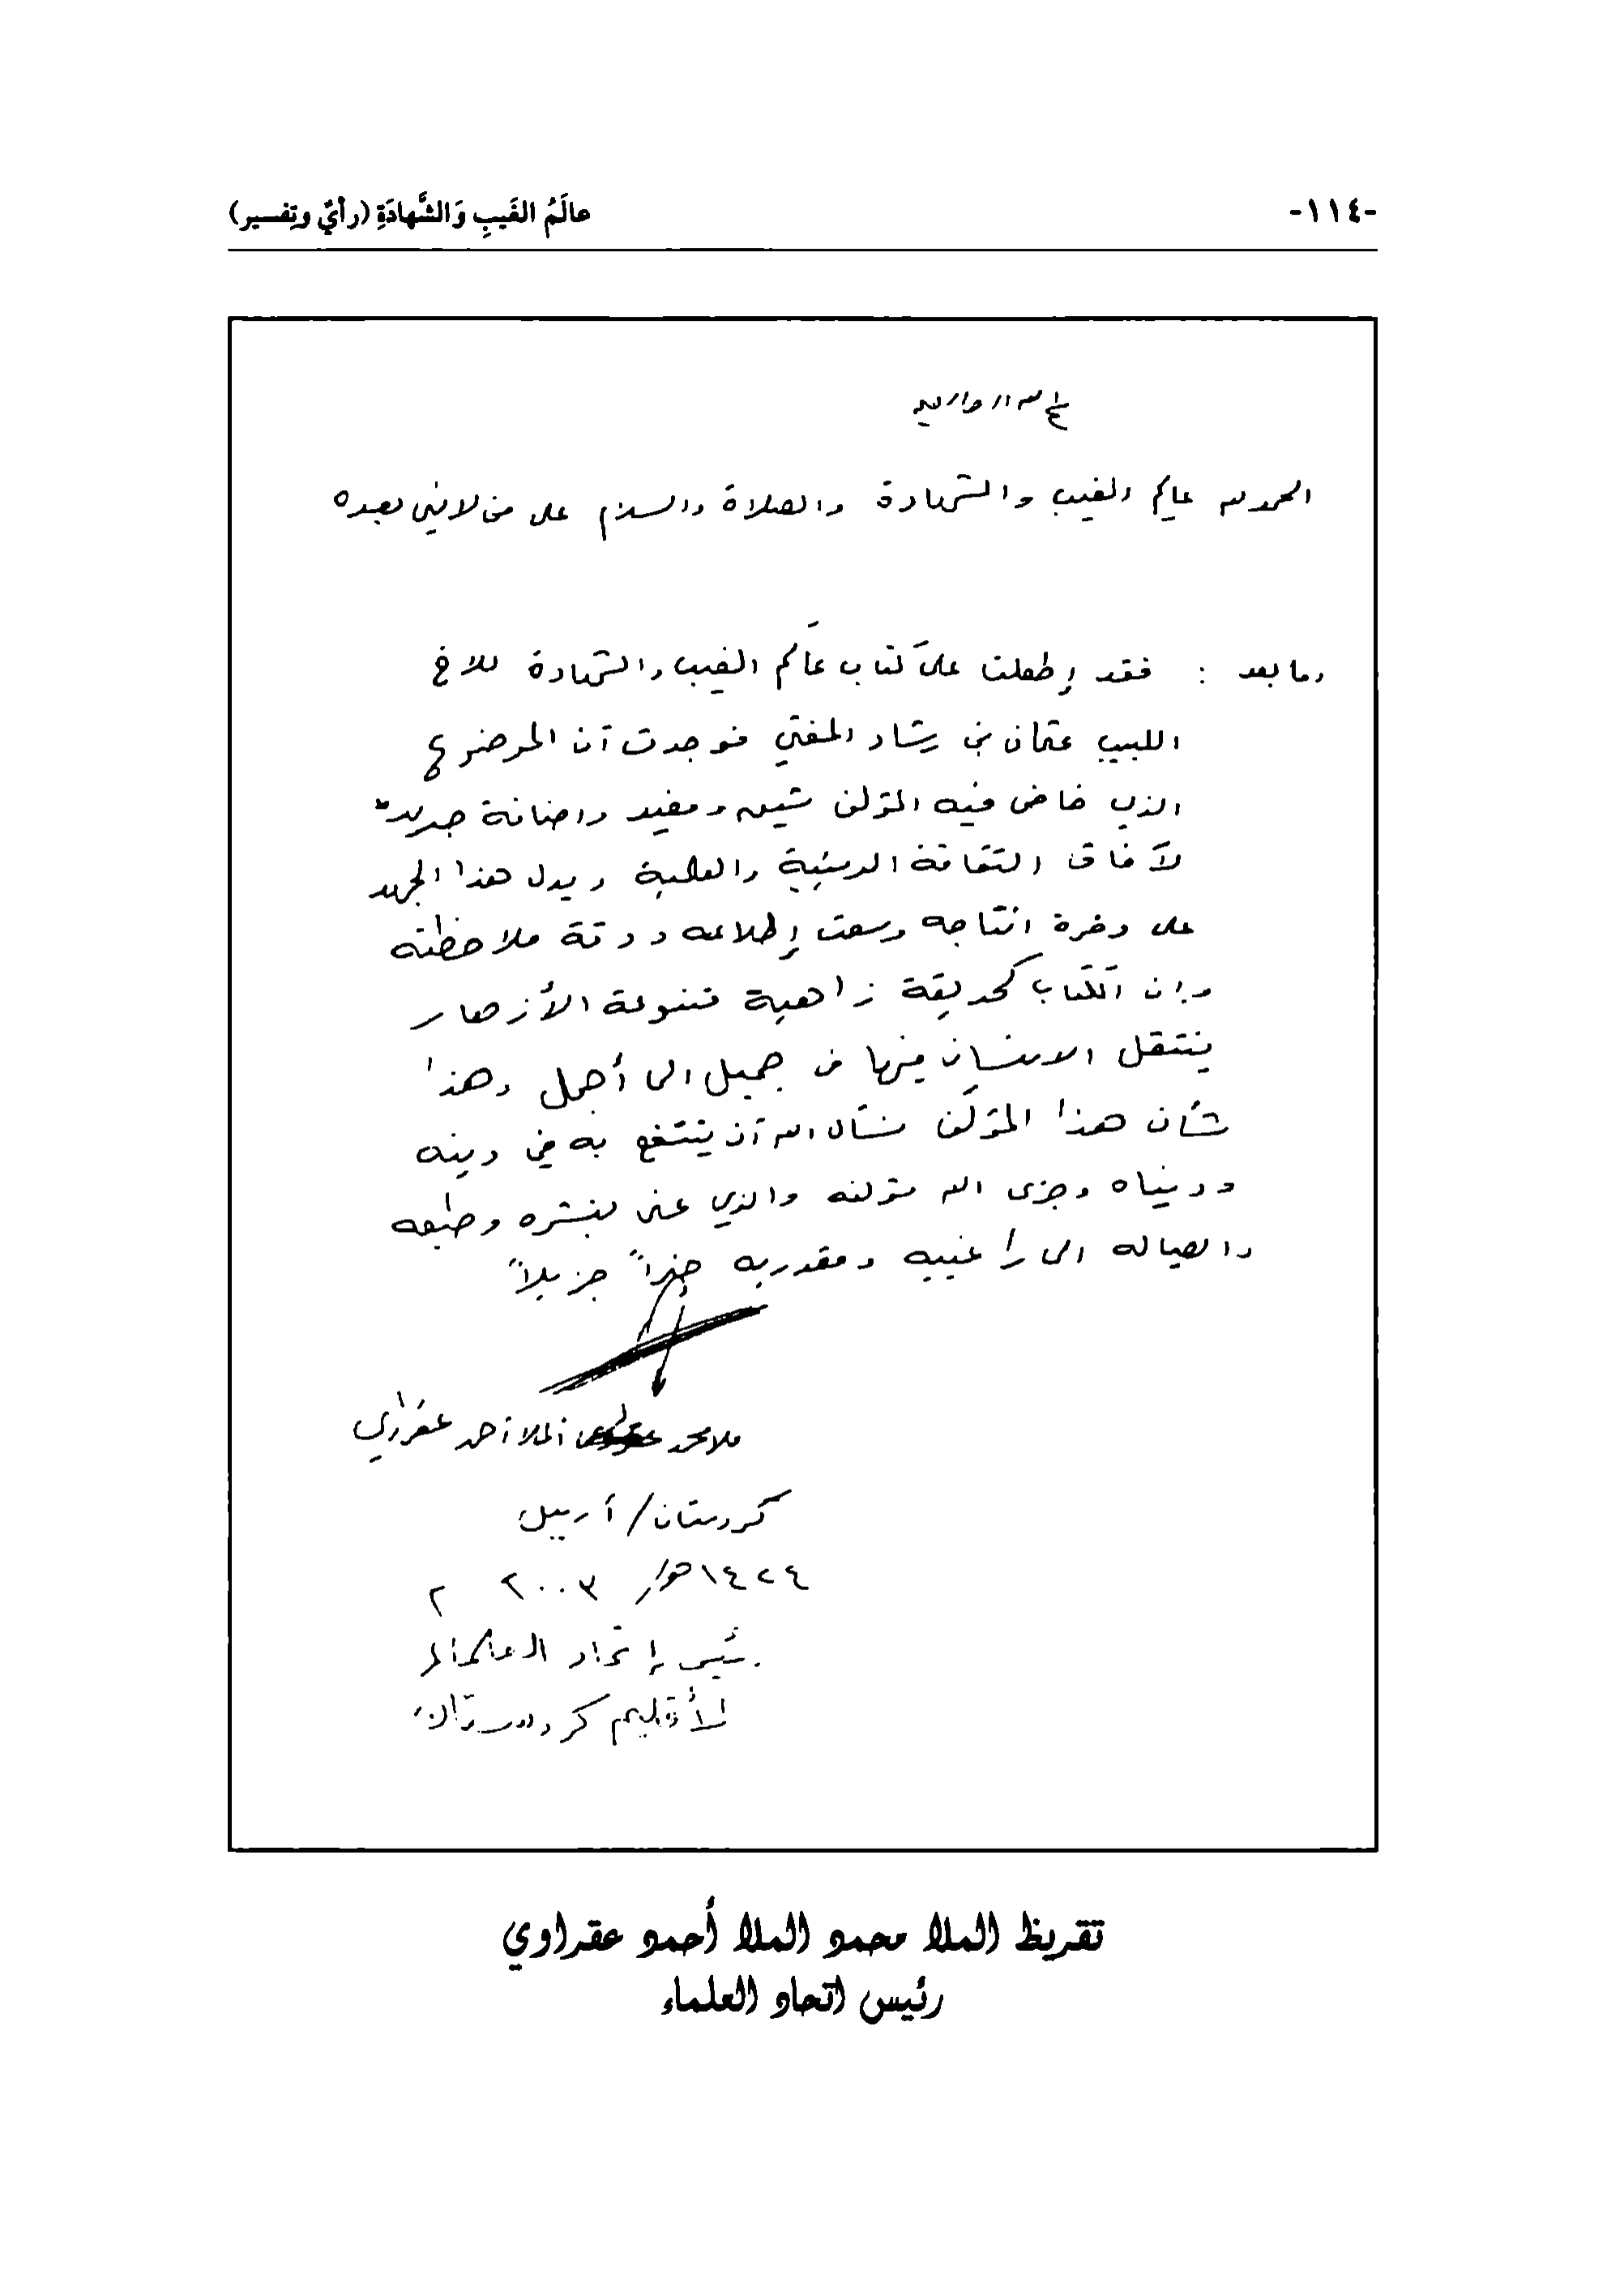 -١١٤-
عالَمُ الغَيبِ وَالشَّهادَةِ (رأيٌ وتِفسير)
الحمد لله عالم الغيب والشهادة والصلاة والسلام على من لا نبي بعده
وما بعد : فقد إطعلت على كتاب عَالَم الغيب والشهادة للاخ
اللبيب عثمان بن رشاد المفتي فوجدت أن الموضوع
الذي خاض فيه المؤلف شيق ومفيد واضافة جديدة
لآفاق الثقافة الدينية والعلمية ويدل هذا الجهد
على وفرة انتاجه وسعت إطلاعه ودقة ملاحظته
وان الكتاب كحديقة زاهية متنوعة الأزهار
ينتقل الانسان فيها من جميل الى أجمل وهذا
شأن هذا المؤلف نسأل الله أن ينتفع به في دينه
ودنياه وجزى الله مؤلفه والذي عنى بنشره وطبعه
وايصاله الى راغبيه ومقدريه خيراً جزيلاً
ملا محمد الملا أحمد عقراوي
كردستان/أربيل
١٤٢٤ ٢٠٠٣ م
رئيس إتحاد العلماء
لأقليم كردستان
تقريظ الملا محمد الملا أحمد عقراوي
رئيس اتحاد العلماء